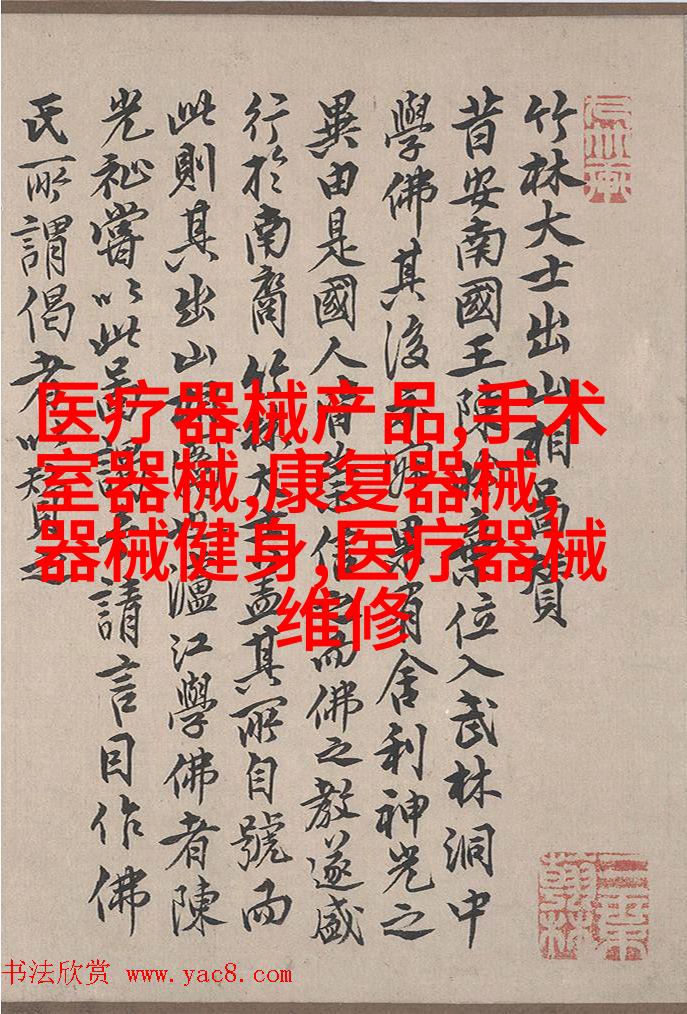 竹林大士出山相
昔安南國王陳棄位入武林洞中
學佛其後示寂果有舍利神光之
異由是國人皆崇信之而佛之教遂盛
行於南裔竹林大士蓋其所自號而
此則其出山江學佛者陳
光祉嘗以此請言因作佛
氏所謂偈者以
医疗器械产品,手术
室器械,康复器械,
器械健身,医疗器械
维修
书法欣赏 www.yac8.com